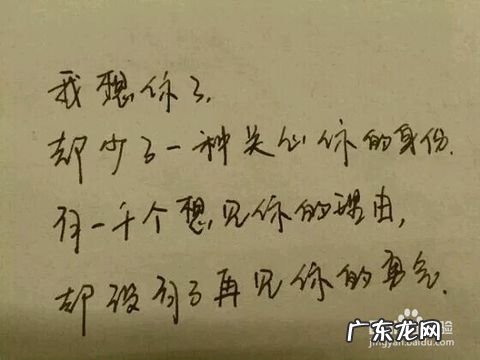 我想你了,
却少了一种关心你的身份.
有一千个想见你的理由,
却没有了再见你的勇气.
jingyan.baidu.com
广东龙网